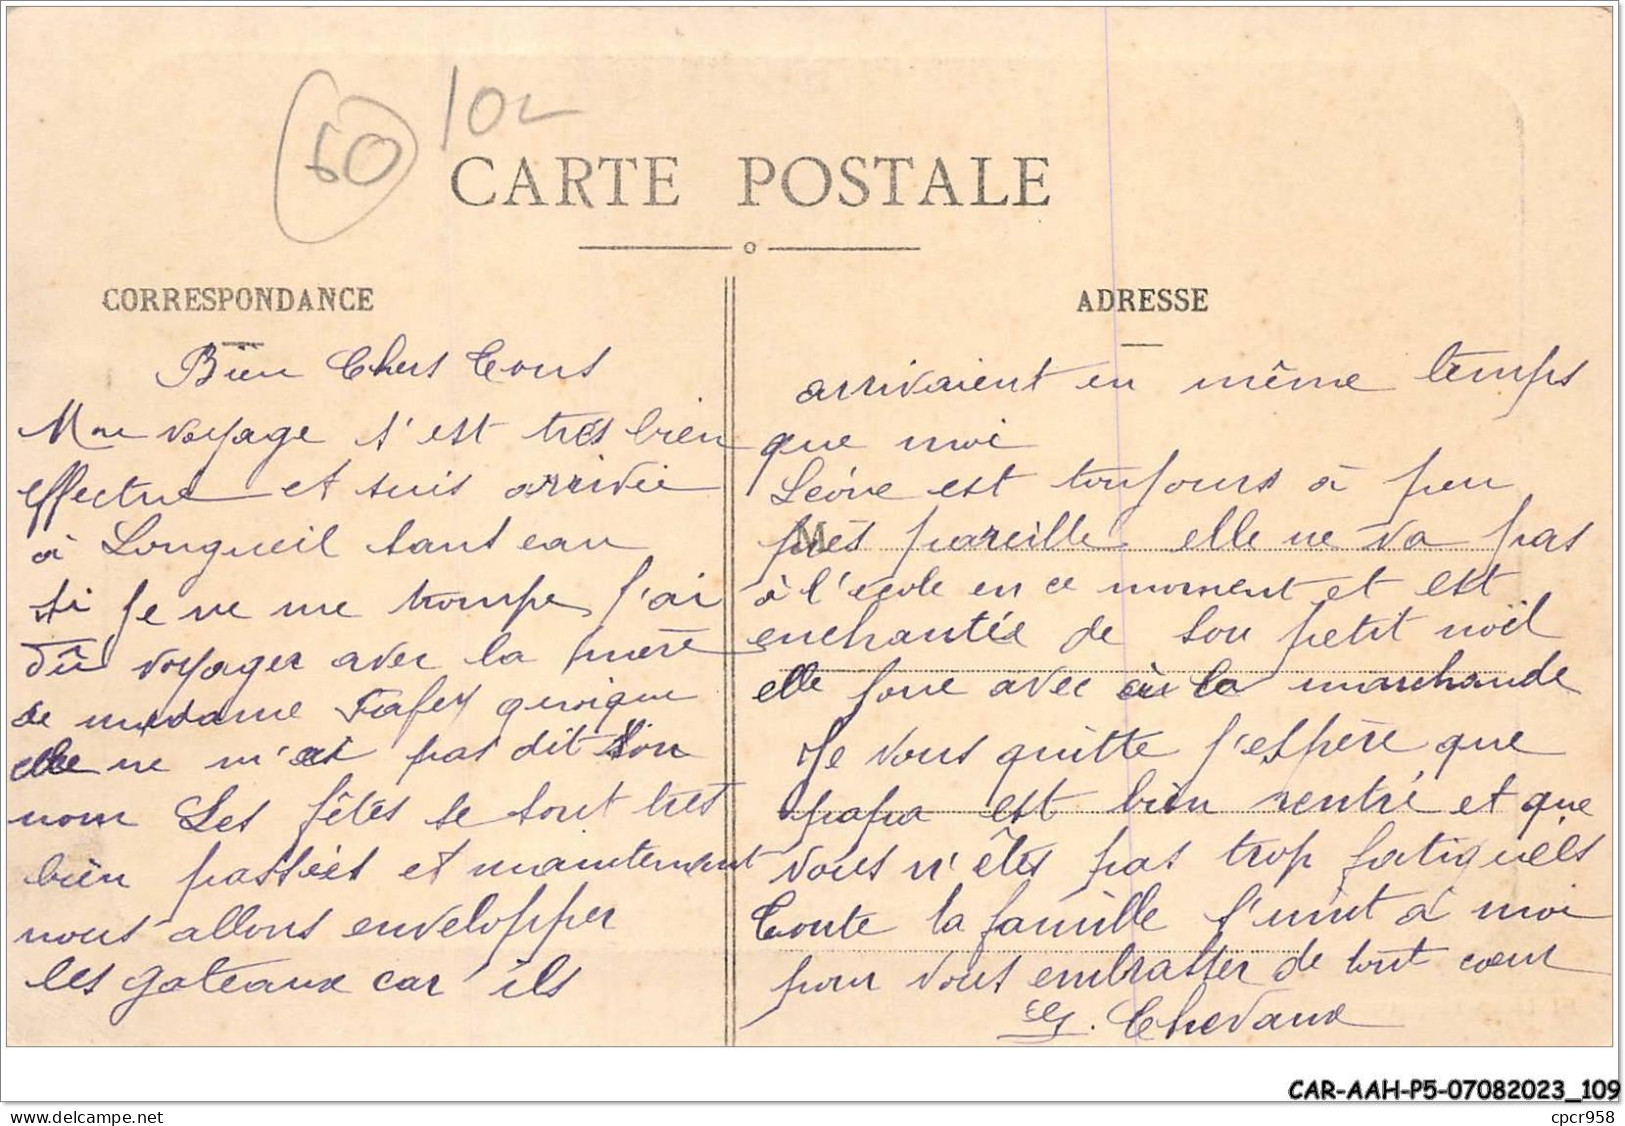 60
102
CARTE POSTALE
CORRESPONDANCE
Bien Chers Tous
Mon voyage s'est très bien
effectué et suis arrivée
à Longueil sans eau
si je ne me trompe j'ai
dû voyager avec la mère
de madame quoique
elle ne m'ai pas dit son
nom Les fêtes se sont très
bien passées et maintenant
nous allons envelopper
les gateaux car ils
ADRESSE
arrivaient en même temps
que moi
Léone est toujours à peu
près pareille elle ne va pas
à l'école en ce moment et est
enchantée de son petit noël
elle joue avec à la marchande
Je vous quitte j'espère que
papa est bien rentré et que
vous n'êtes pas trop fatiguéls
Toute la famille s'unit à moi
pour vous embrasser de tout cœur
G. Chevaux
CAR-AAH-P5-07082023_109
delcampe.net
cpcr958